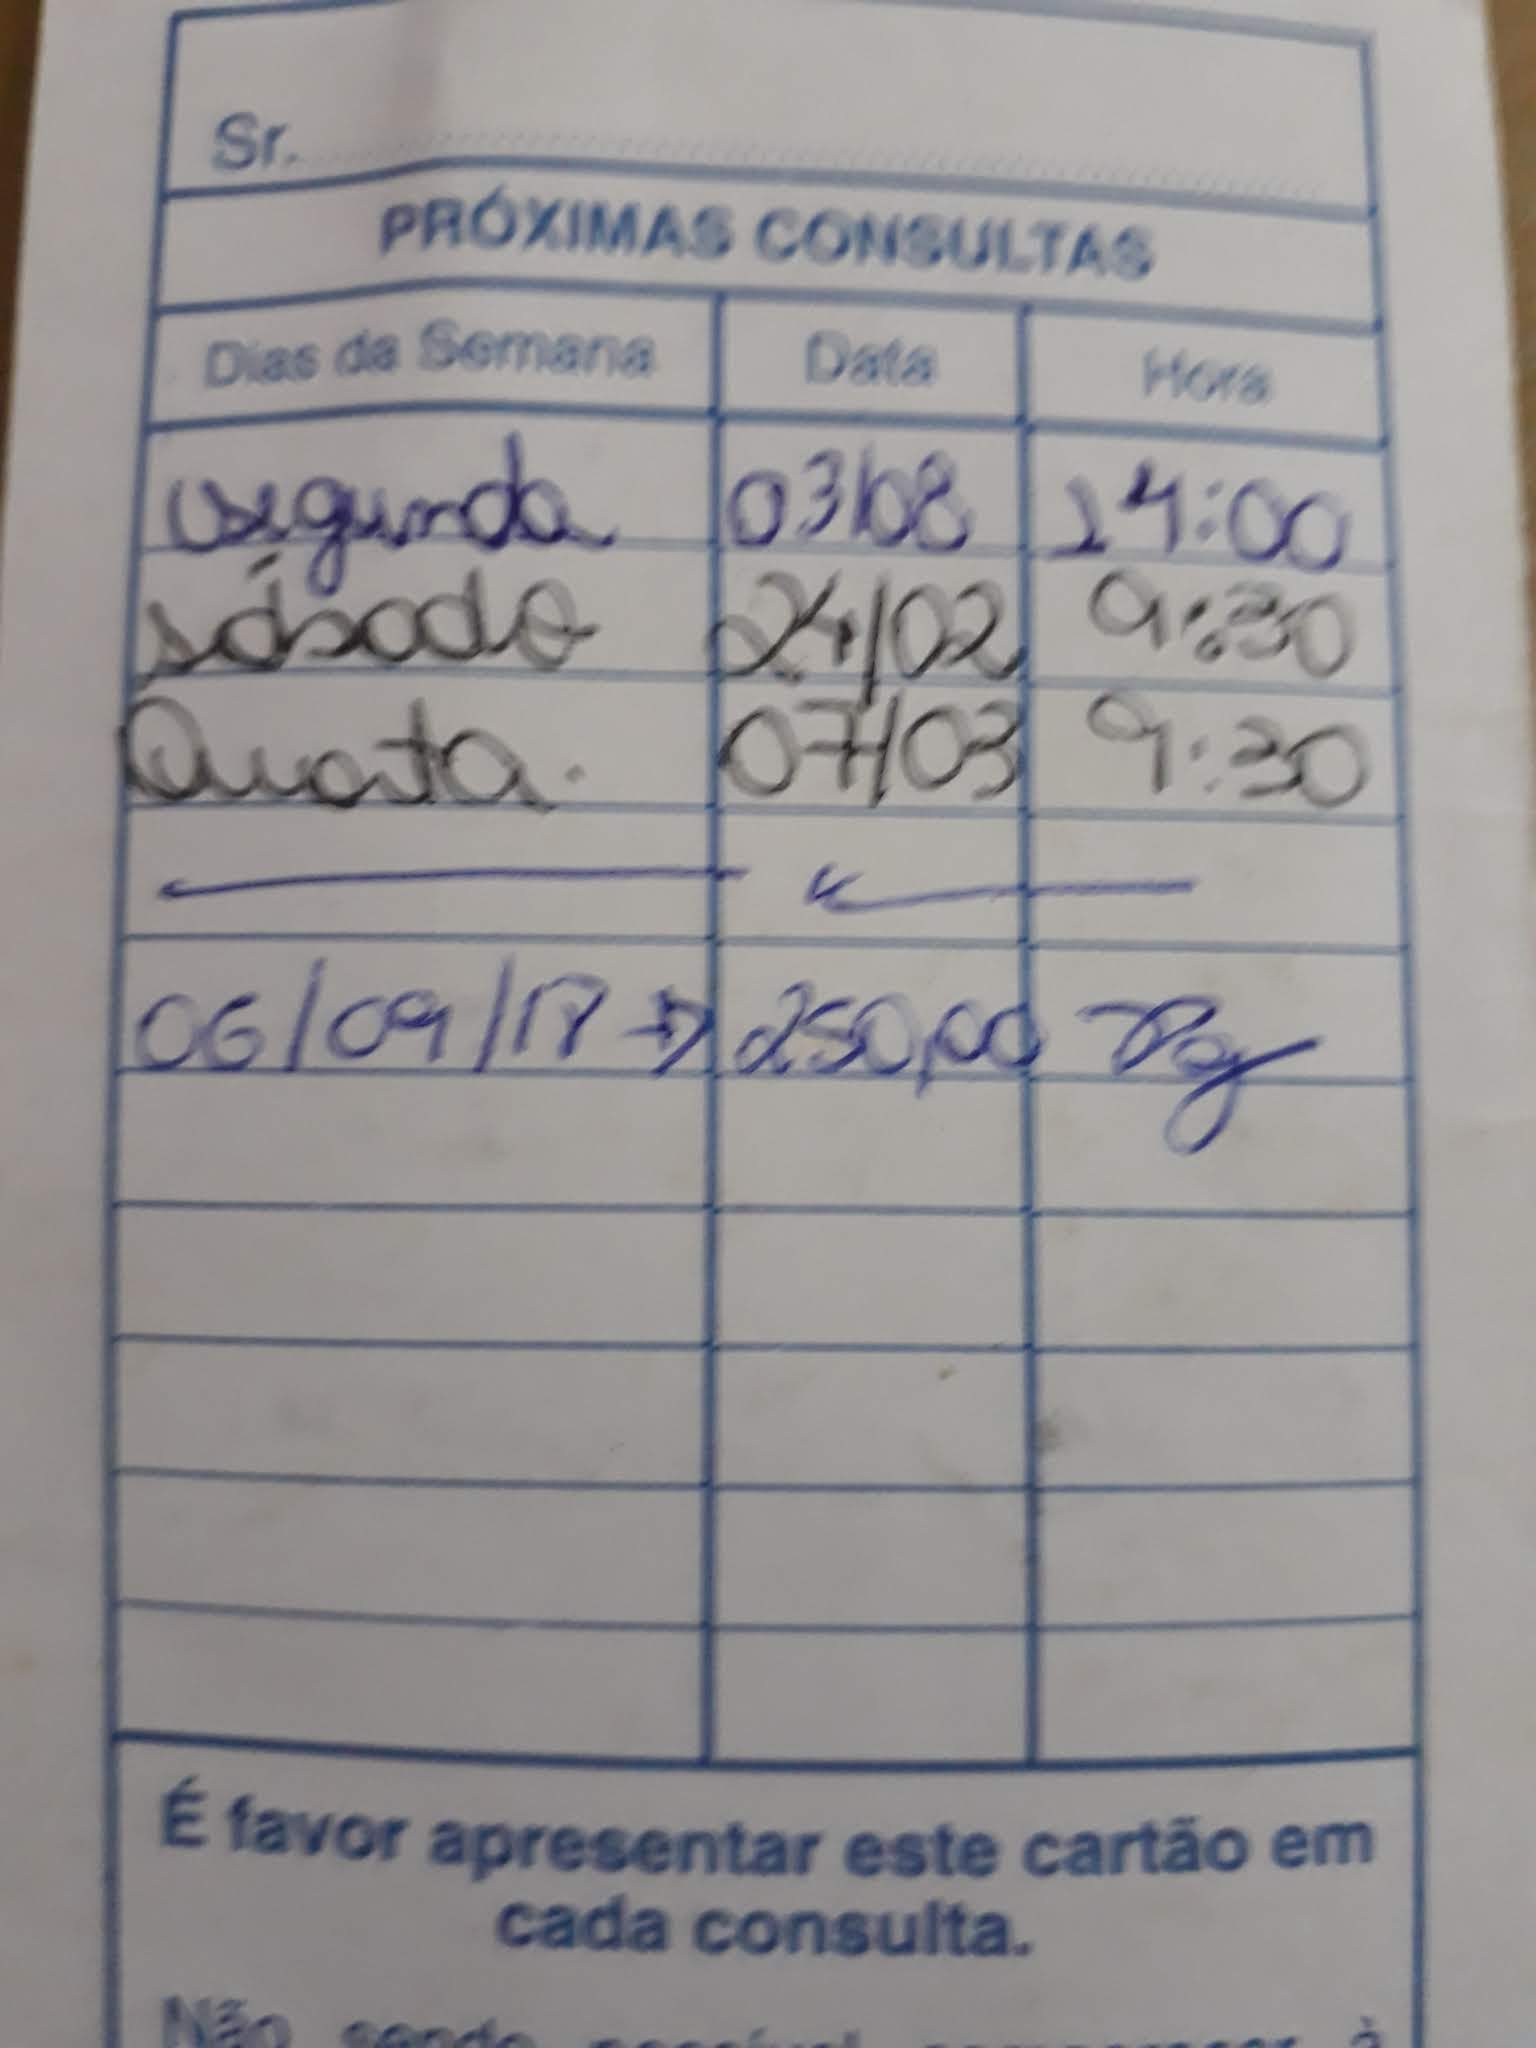 Sr.
PRÓXIMAS CONSULTAS
Dias da Semana Data Hora
segunda 03/08 14:00
sábado 24/02 9:30
Quarta. 07/03 9:30
06/09/18 → 250,00 Pg
É favor apresentar este cartão em
cada consulta.
Não sendo possível comparecer à